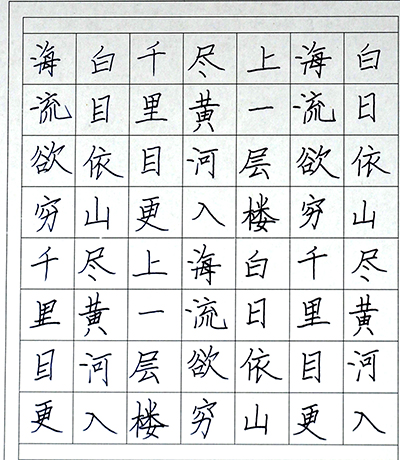 白日依山尽黄河入
海流欲穷千里目更
上一层楼白日依山
尽黄河入海流欲穷
千里目更上一层楼
白目依山尽黄河入
海流欲穷千里目更